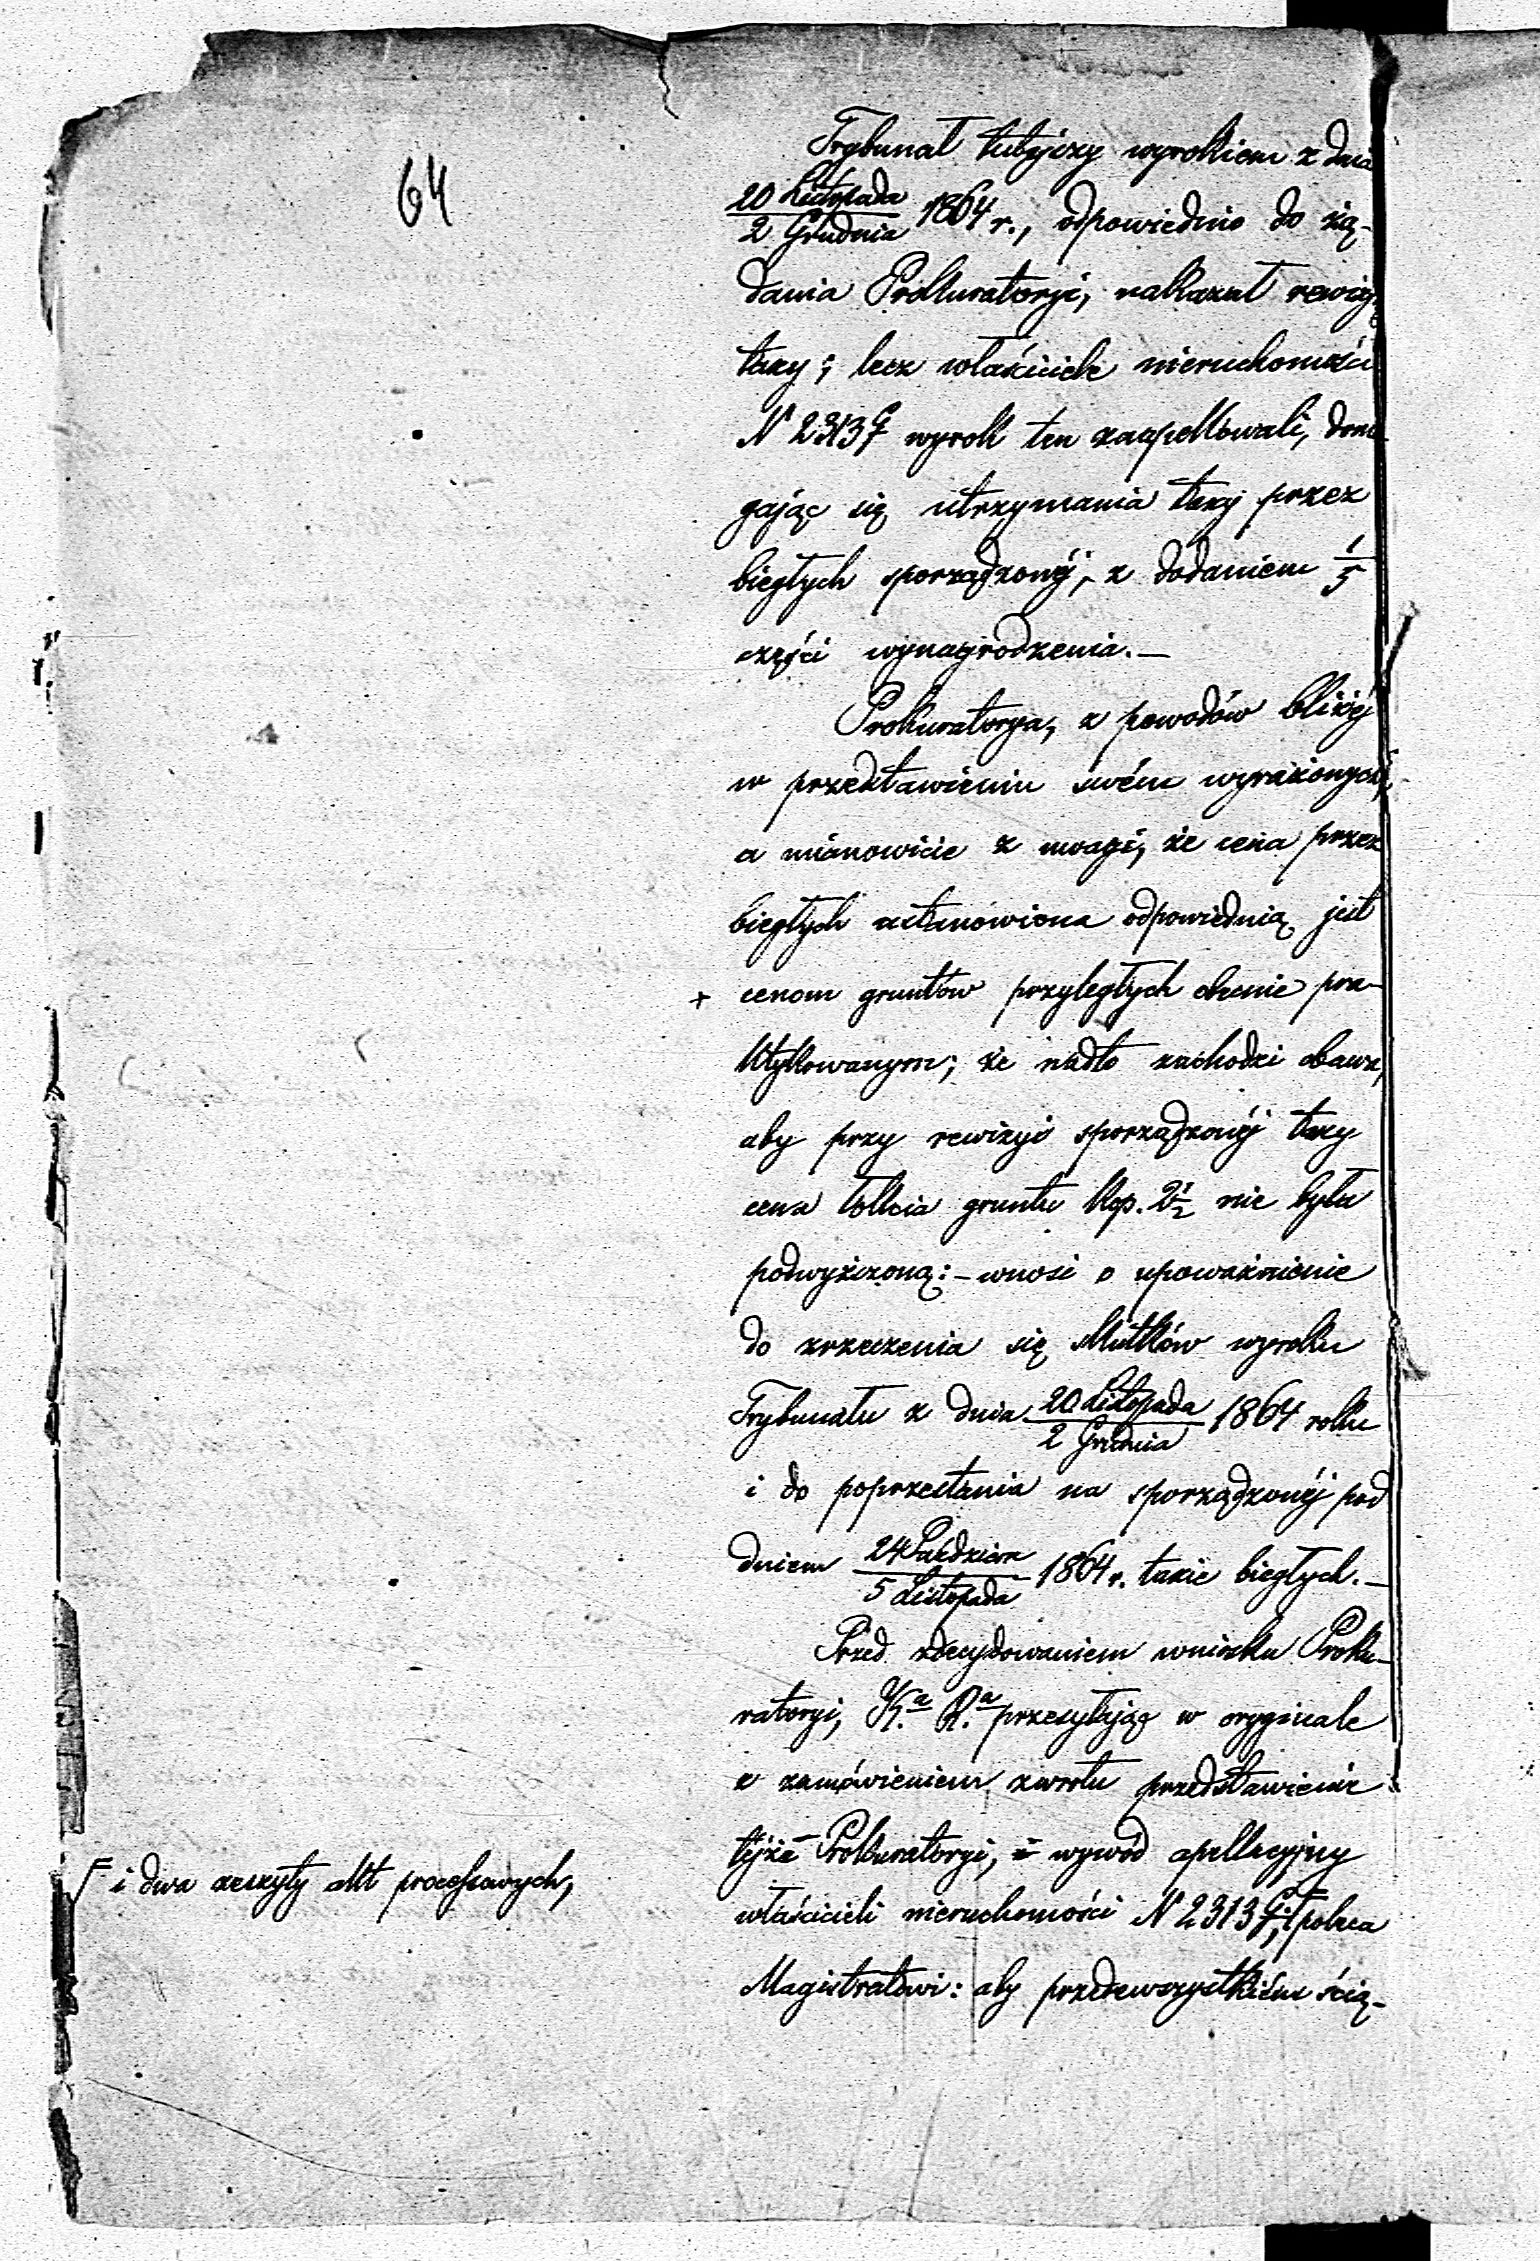 64
Trybunał tutejszy wyrokiem z dnia
20 Listopada / 2 Grudnia 1864 r., odpowiednio do żą-
dania Prokuratoryi, nakazał rewizyę
taxy; lecz właściciele nieruchomości
N 2313 G wyrok ten zaapellowali, doma-
gając się utrzymania taxy przez
biegłych sporządzonéj, z dodaniem 1/5
części wynagrodzenia.—
Prokuratorya, z powodów bliżéj
w przedstawieniu swém wyrażonych,
a mianowicie z uwagi, że cena przez
biegłych ustanowiona odpowiednią jest
+ cenom gruntów przyległych obecnie pra-
ktykowanym; że nadto zachodzi obawa,
aby przy rewizyi sporządzonéj taxy
cena łokcia gruntu kop. 2½ nie była
podwyższoną:— wnosi o upoważnienie
do zrzeczenia się skutków wyroku
Trybunału z dnia 20 Listopada / 2 Grudnia 1864 roku
i do poprzestania na sporządzonéj pod
dniem 24 Paździer / 5 Listopada 1864 r. taxie biegłych.—
Przed zdecydowaniem wniosku Proku-
ratoryi, K.a R.a przesyłając w oryginale
z zamówieniem zwrotu przedstawienie
téjże Prokuratoryi, i wywód apellacyjny
właścicieli nieruchomości N 2313 G, polca
Magistratowi: aby przedewszystkiém ścią-
i dwa zeszyty akt processowych,